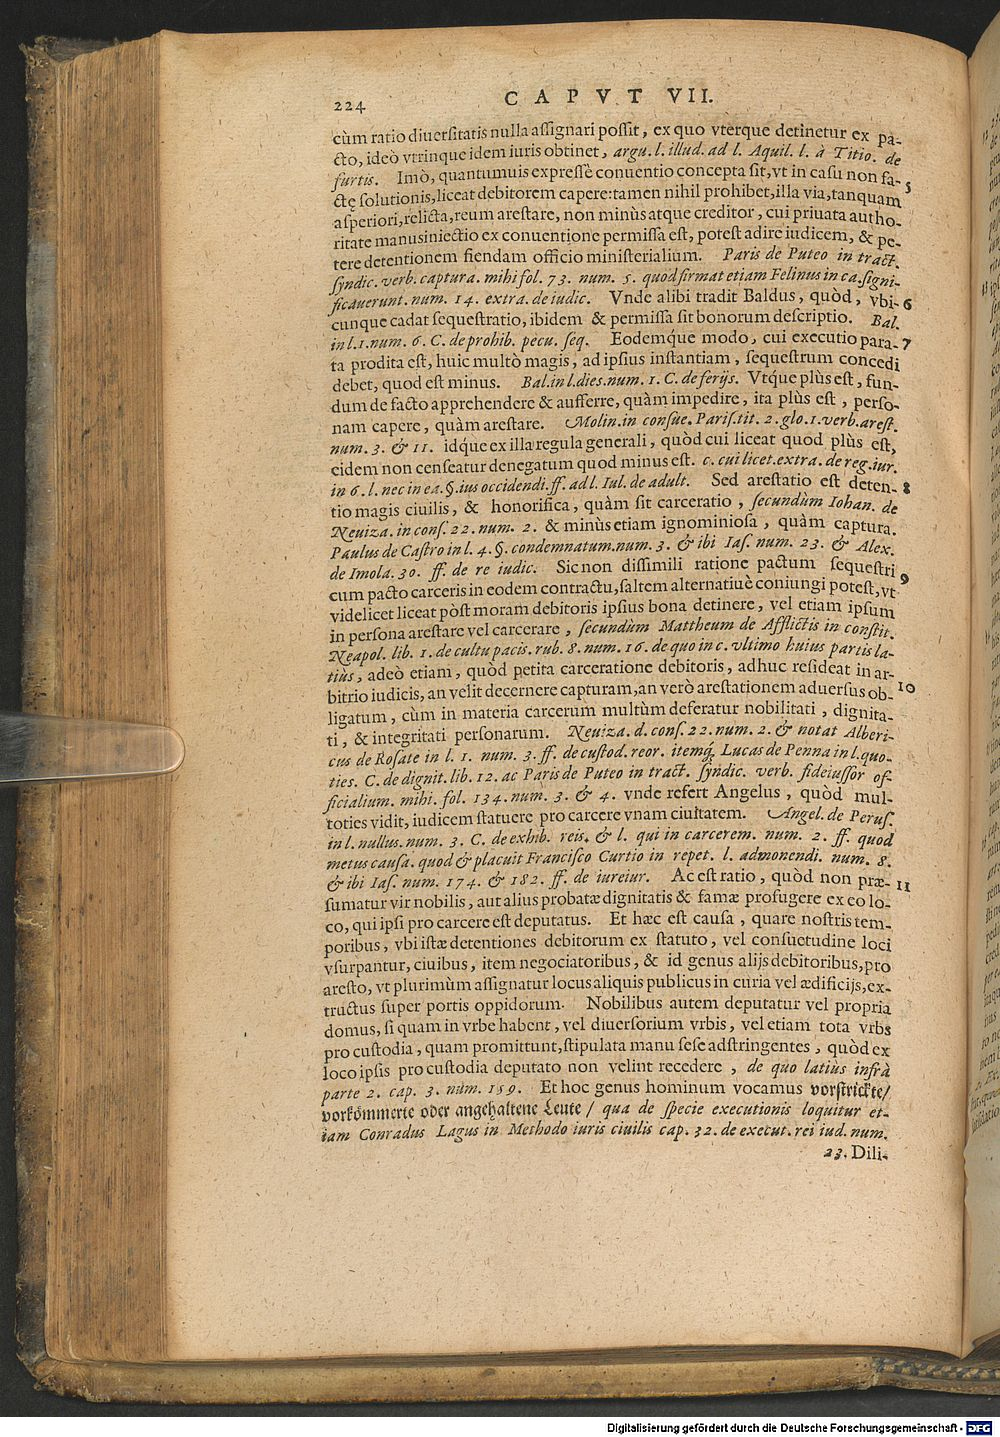 224 CAPVT VII.
cùm ratio diuersitatis nulla assignari possit, ex quo vterque detinetur ex pa-
cto, ideò vtrinque idem iuris obtinet, argu. l. illud. ad l. Aquil. l. à Titio. de
furtis. Imò, quantumuis expressè conuentio concepta sit, vt in casu non fa- 5
ctę solutionis, liceat debitorem capere: tamen nihil prohibet, illa via, tanquam
asperiori, relicta, reum arestare, non minùs atque creditor, cui priuata autho-
ritate manusiniectio ex conuentione permissa est, potest adire iudicem, & pe-
tere detentionem fiendam officio ministerialium. Paris de Puteo in tract.
syndic. verb. captura. mihi fol. 73. num. 5. quod firmat etiam Felinus in ca. signi-
ficauerunt. num. 14. extra. de iudic. Vnde alibi tradit Baldus, quòd, vbi- 6
cunque cadat sequestratio, ibidem & permissa sit bonorum descriptio. Bal.
in l. 1. num. 6. C. de prohib. pecu. seq. Eodemq́ue modo, cui executio para- 7
ta prodita est, huic multò magis, ad ipsius instantiam, sequestrum concedi
debet, quod est minus. Bal. in l. dies. num. 1. C. de ferijs. Vtq́ue plùs est, fun-
dum de facto apprehendere & aufferre, quàm impedire, ita plùs est, perso-
nam capere, quàm arestare. Molin. in consue. Paris. tit. 2. glo. 1. verb. arest.
num. 3. & 11. idq́ue ex illa regula generali, quòd cui liceat quod plùs est,
eidem non censeatur denegatum quod minus est. c. cui licet. extra. de reg. iur.
in 6. l. nec in ea. §. ius occidendi. ff. ad l. Iul. de adult. Sed arestatio est deten- 8
tio magis ciuilis, & honorifica, quàm sit carceratio, secundùm Iohan. de
Neuiza. in cons. 22. num. 2. & minùs etiam ignominiosa, quàm captura.
Paulus de Castro in l. 4. §. condemnatum. num. 3. & ibi Ias. num. 23. & Alex.
de Imola. 30. ff. de re iudic. Sic non dissimili ratione pactum sequestri 9
cum pacto carceris in eodem contractu, saltem alternatiuè coniungi potest, vt
videlicet liceat pòst moram debitoris ipsius bona detinere, vel etiam ipsum
in persona arestare vel carcerare, secundùm Mattheum de Afflictis in constit.
Neapol. lib. 1. de cultu pacis. rub. 8. num. 16. de quo in c. vltimo huius partis la-
tiùs, adeò etiam, quòd petita carceratione debitoris, adhuc resideat in ar- 10
bitrio iudicis, an velit decernere capturam, an verò arestationem aduersus ob-
ligatum, cùm in materia carcerum multùm deferatur nobilitati, dignita-
ti, & integritati personarum. Neuiza. d. cons. 22. num. 2. & notat Alberi-
cus de Rosate in l. 1. num. 3. ff. de custod. reor. itemq́; Lucas de Penna in l. quo-
ties. C. de dignit. lib. 12. ac Paris de Puteo in tract. syndic. verb. fideiussor of-
ficialium. mihi. fol. 134. num. 3. & 4. vnde refert Angelus, quòd mul-
toties vidit, iudicem statuere pro carcere vnam ciuitatem. Angel. de Perus.
in l. nullus. num. 3. C. de exhib. reis. & l. qui in carcerem. num. 2. ff. quod
metus causa. quod & placuit Francisco Curtio in repet. l. admonendi. num. 8.
& ibi Ias. num. 174. & 182. ff. de iureiur. Ac est ratio, quòd non præ- 11
sumatur vir nobilis, aut alius probatæ dignitatis & famæ profugere ex eo lo-
co, qui ipsi pro carcere est deputatus. Et hæc est causa, quare nostris tem-
poribus, vbi istæ detentiones debitorum ex statuto, vel consuetudine loci
vsurpantur, ciuibus, item negociatoribus, & id genus alijs debitoribus, pro
aresto, vt plurimùm assignatur locus aliquis publicus in curia vel ædificijs, ex-
tructus super portis oppidorum. Nobilibus autem deputatur vel propria
domus, si quam in vrbe habent, vel diuersorium vrbis, vel etiam tota vrbs
pro custodia, quam promittunt, stipulata manu sese adstringentes, quòd ex
loco ipsis pro custodia deputato non velint recedere, de quo latiùs infrà
parte 2. cap. 3. núm. 159. Et hoc genus hominum vocamus vorstrickte/
vorkömmerte oder angehaltene Leute / qua de specie executionis loquitur et-
iam Conradus Lagus in Methodo iuris ciuilis cap. 32. de execut. rei iud. num.
23. Dili-
Digitalisierung gefördert durch die Deutsche Forschungsgemeinschaft - DFG